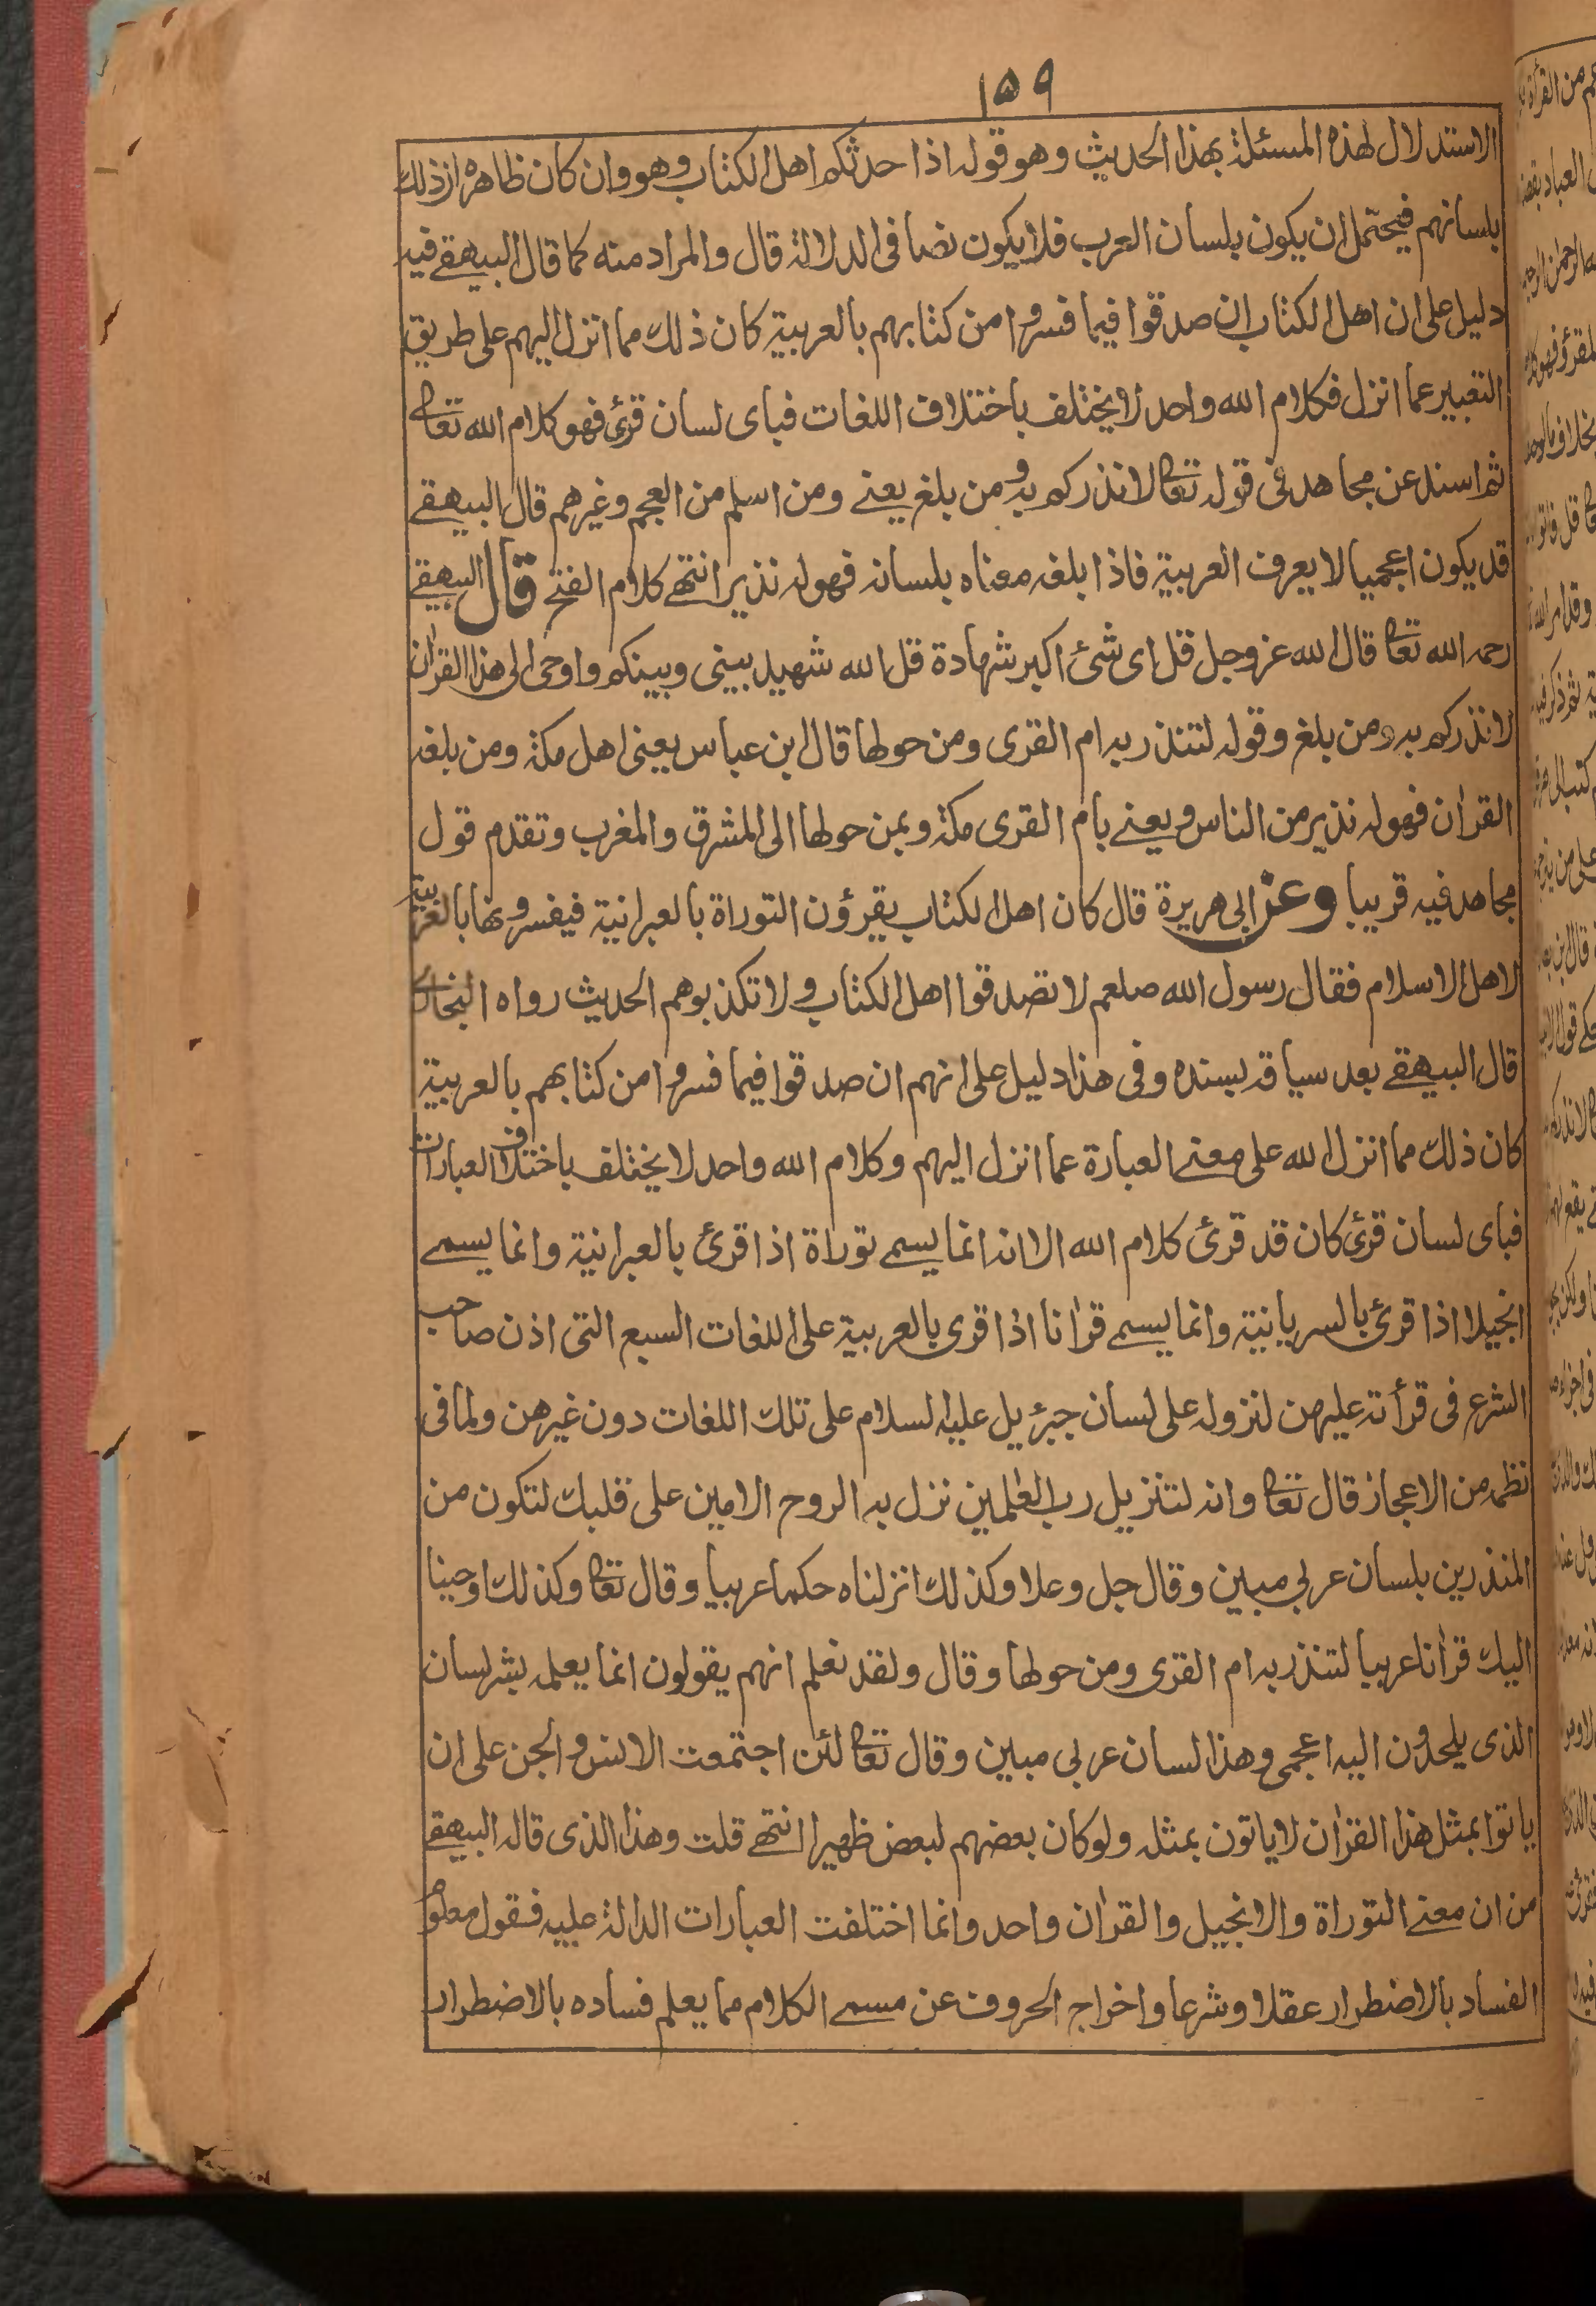 ١٥٩
الاستدلال لهذه المسئلة بهذا الحديث وهو قوله اذا حدثكم اهل الكتاب وهو وان كان ظاهره ان ذلك
بلسانهم فيحتمل ان يكون بلسان العرب فلا يكون نصا فى الدلالة قال والمراد منه كما قال البيهقے فيه
دليل على ان اهل الكتاب ان صدقوا فيما فسروا من كتابهم بالعربية كان ذلك مما انزل اليهم على طريق
التعبير عما انزل فكلام الله واحد لا يختلف باختلاف اللغات فباى لسان قرئ فهو كلام الله تعالى
ثم اسند عن مجاهد فى قوله تعالى لانذركم به ومن بلغ يعنے ومن اسلم من العجم وغيرهم قال البيهقے
قد يكون اعجميا لا يعرف العربية فاذا بلغه معناه بلسانه فهو له نذير انتهے كلام الفتح قال البيهقے
رحمه الله تعالى قال الله عز وجل قل اى شئ اكبر شهادة قل الله شهيد بينى وبينكم واوحى الى هذا القران
لانذركم به ومن بلغ وقوله لتنذر به ام القرى ومن حولها قال ابن عباس يعنى اهل مكة ومن بلغه
القران فهو له نذير من الناس ويعنے بام القرى مكة وبمن حولها الى المشرق والمغرب وتقدم قول
مجاهد فيه قريبا وعن ابى هريرة قال كان اهل الكتاب يقرؤن التوراة بالعبرانية فيفسرونها بالعربية
لاهل الاسلام فقال رسول الله صلعم لا تصدقوا اهل الكتاب ولا تكذبوهم الحديث رواه البخارى
قال البيهقے بعد سياقه بسنده وفى هذا دليل على انهم ان صدقوا فيما فسروا من كتابهم بالعربية
كان ذلك مما انزل الله على معنے العبارة عما انزل اليهم وكلام الله واحد لا يختلف باختلاف العبارات
فباى لسان قرئ كان قد قرئ كلام الله الا انه انما يسمے توراة اذا قرئ بالعبرانية وانما يسمے
انجيلا اذا قرئ بالسريانية وانما يسمے قرانا اذا قرى بالعربية على اللغات السبع التى اذن صاحب
الشرع فى قرأته عليهن لنزوله على لسان جبرئيل عليه السلام على تلك اللغات دون غيرهن ولما فى
نظمه من الاعجاز قال تعالى وانه لتنزيل رب العلمين نزل به الروح الامين على قلبك لتكون من
المنذرين بلسان عربى مبين وقال جل وعلا وكذلك انزلناه حكما عربيا وقال تعالى وكذلك اوحينا
اليك قرانا عربيا لتنذر به ام القرى ومن حولها وقال ولقد نعلم انهم يقولون انما يعلمه بشر لسان
الذى يلحدون اليه اعجمى وهذا لسان عربى مبين وقال تعالى لئن اجتمعت الانس والجن على ان
ياتوا بمثل هذا القران لا ياتون بمثله ولو كان بعضهم لبعض ظهيرا انتهے قلت وهذا الذى قاله البيهقے
من ان معنے التوراة والانجيل والقران واحد وانما اختلفت العبارات الدالة عليه فقول معلوم
الفساد بالاضطرار عقلا وشرعا واخراج الحروف عن مسمے الكلام مما يعلم فساده بالاضطرار